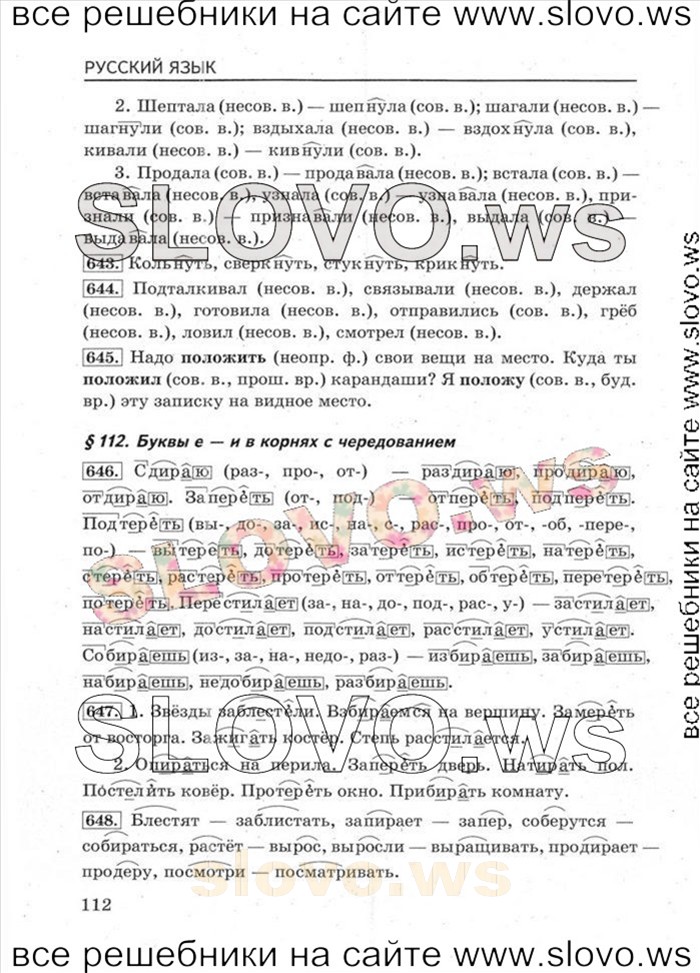 все решебники на сайте www.slovo.ws
РУССКИЙ ЯЗЫК
2. Шептала (несов. в.) — шепнула (сов. в.); шагали (несов. в.) —
шагнули (сов. в.); вздыхала (несов. в.) — вздохнула (сов. в.),
кивали (несов. в.) — кивнули (сов. в.).
3. Продала (сов. в.) — продавала (несов. в.); встала (сов. в.) —
вставала (несов. в.), узнала (сов. в.) — узнавала (несов. в.), при-
знали (сов. в.) — признавали (несов. в.), выдала (сов. в.) —
выдавала (несов. в.).
SLOVO.ws
643. Кольнуть, сверкнуть, стукнуть, крикнуть.
644. Подталкивал (несов. в.), связывали (несов. в.), держал
(несов. в.), готовила (несов. в.), отправились (сов. в.), грёб
(несов. в.), ловил (несов. в.), смотрел (несов. в.).
645. Надо положить (неопр. ф.) свои вещи на место. Куда ты
положил (сов. в., прош. вр.) карандаши? Я положу (сов. в., буд.
вр.) эту записку на видное место.
§ 112. Буквы е — и в корнях с чередованием
646. Сдираю (раз-, про-, от-) — раздираю, продираю,
отдираю. Запереть (от-, под-) — отпереть, подпереть.
Подтереть (вы-, до-, за-, ис-, на-, с-, рас-, про-, от-, -об, -пере-,
по-) — вытереть, дотереть, затереть, истереть, натереть,
стереть, растереть, протереть, оттереть, обтереть, перетереть,
потереть. Перестилает (за-, на-, до-, под-, рас-, у-) — застилает,
настилает, достилает, подстилает, расстилает, устилает.
Собираешь (из-, за-, на-, недо-, раз-) — избираешь, забираешь,
набираешь, недобираешь, разбираешь.
slovo.ws
647. 1. Звёзды заблестели. Взбираемся на вершину. Замереть
от восторга. Зажигать костёр. Степь расстилается.
SLOVO.ws
2. Опираться на перила. Запереть дверь. Натирать пол.
Постелить ковёр. Протереть окно. Прибирать комнату.
648. Блестят — заблистать, запирает — запер, соберутся —
собираться, растёт — вырос, выросли — выращивать, продирает —
продеру, посмотри — посматривать.
slovo.ws
112
все решебники на сайте www.slovo.ws
все решебники на сайте www.slovo.ws